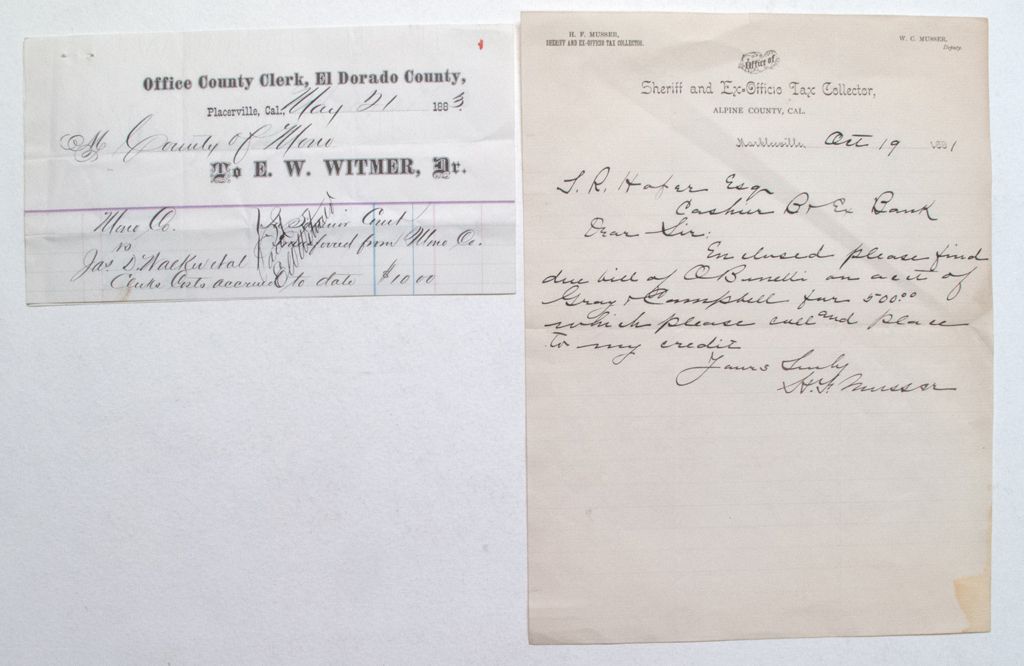 Office County Clerk, El Dorado County,
Placerville, Cal., May 21 1883
M County of Mono
To E. W. WITMER, Dr.
Mono Co.
vs
Jas D. Walker et al
In Superior Court
Transferred from Mono Co.
Clerks Costs accrued to date $10 00
Paid
E W Witmer
H. F. MUSSER,
SHERIFF AND EX-OFFICIO TAX COLLECTOR.
W. C. MUSSER,
Deputy.
Office of
Sheriff and Ex-Officio Tax Collector,
ALPINE COUNTY, CAL.
Markleeville, Oct 19 1891
T. R. Hofer Esqr
Cashier B & Ex Bank
Dear Sir:
Enclosed please find
due bill of O Bunelli on acct of
Gray & Campbell for 500.00
which please call and place
to my credit
Yours Truly
H. F. Musser